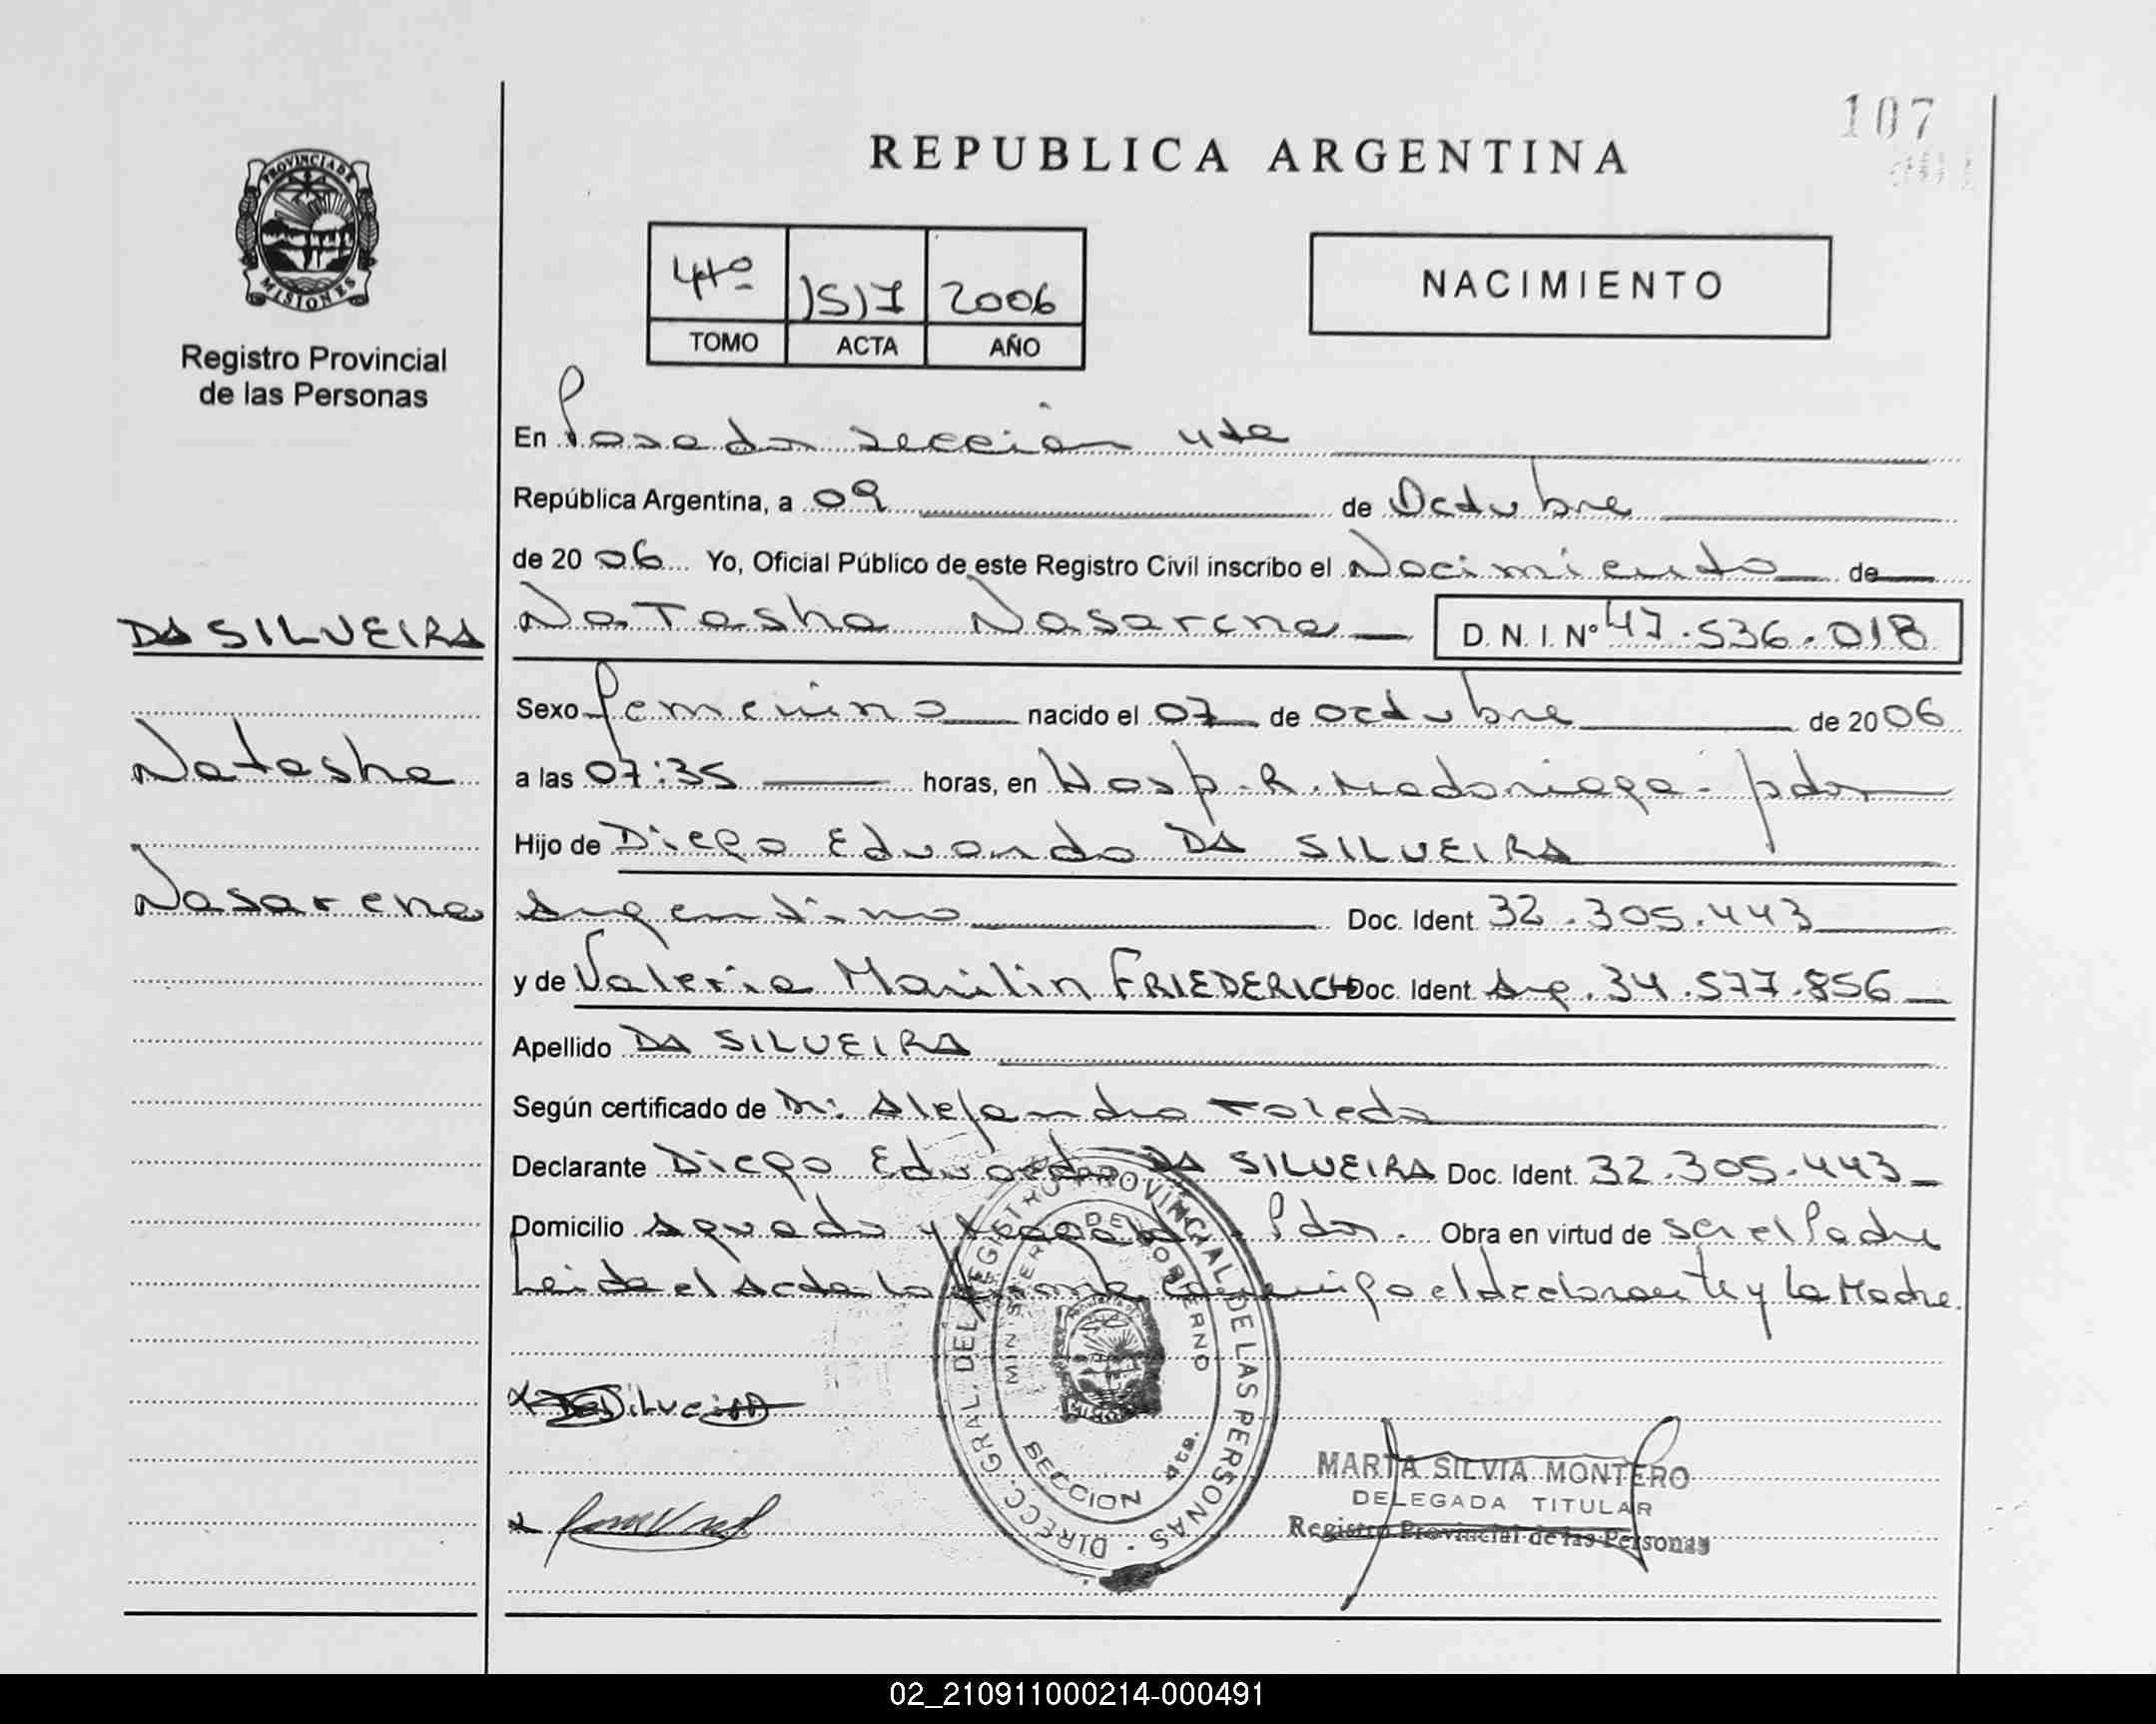 107
REPUBLICA ARGENTINA
PROVINCIA DE
MISIONES
Registro Provincial
de las Personas
4tº 1517 2006
TOMO ACTA AÑO
NACIMIENTO
En Posadas sección 4ta
República Argentina, a 09 de Octubre
de 20 06 Yo, Oficial Público de este Registro Civil inscribo el Nacimiento de
DA SILVEIRA
Natasha Nasarena D. N. I. Nº 47.536.018
Sexo femenino nacido el 07 de octubre de 20 06
Natasha
a las 07:35 horas, en Hosp. R. Madariaga - pdas
Hijo de Diego Eduardo DA SILVEIRA
Nasarena
Argentino Doc. Ident. 32.305.443
y de Valeria Marilin FRIEDERICH Doc. Ident. Arg. 34.577.856
Apellido DA SILVEIRA
Según certificado de Dr. Alejandro Toledo
Declarante Diego Eduardo DA SILVEIRA Doc. Ident. 32.305.443
Domicilio Aguado y - Pdas. Obra en virtud de ser el Padre
Leida el Acta la firma conmigo el declarante y la Madre.
DIRECC. GRAL. DEL REGISTRO PROVINCIAL DE LAS PERSONAS
MINISTERIO DE GOBIERNO
SECCION 4ta.
MARTA SILVIA MONTERO
DELEGADA TITULAR
Registro Provincial de las Personas
02_210911000214-000491